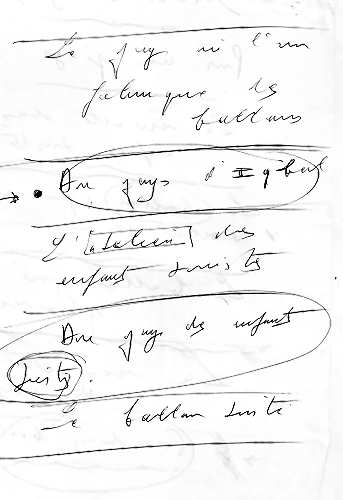 Le pays où l'on
fabrique des
ballons
Au pays d'
L'[atelier] des
enfants tristes
Au pays des enfants
tristes.
Le ballon triste